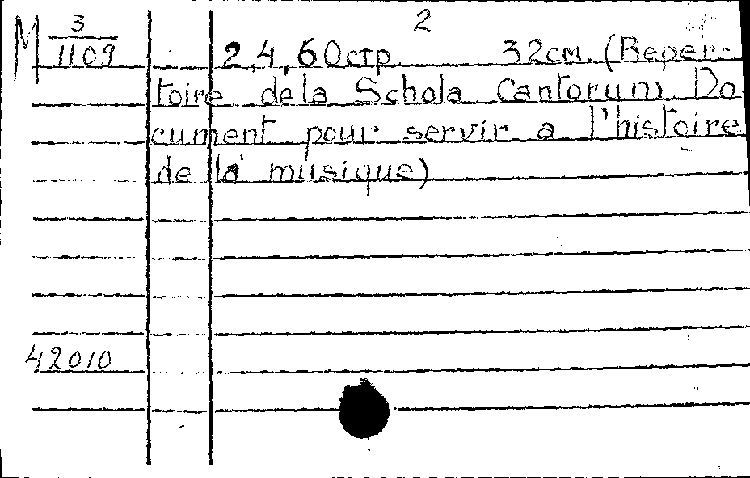 2
М 3
1109
2,4,60стр. 32см. (Reper-
toire de la Schola Cantorum. Do
cument pour servir a l'histoire
de la musique)
42010